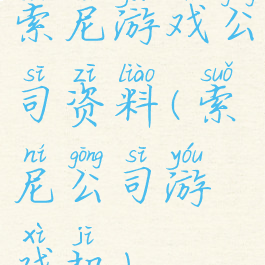 索尼游戏公
sī zī liào suǒ
司资料(索
ní gōng sī yóu
尼公司游
xì jī
戏机)